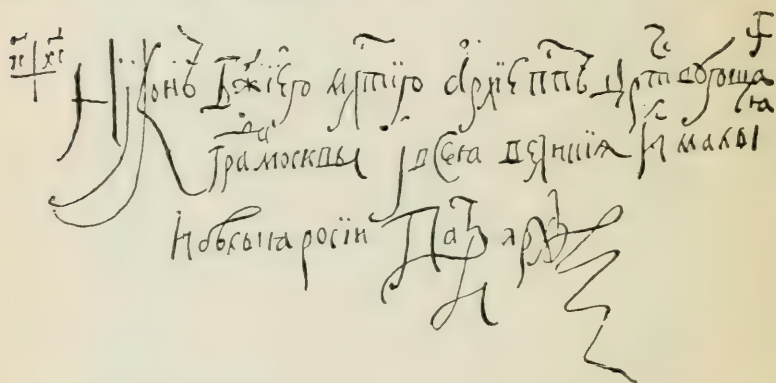 І҃с Х҃с Нїконъ Бж҃їею мл҃тїю а҆рхїепⷭ҇пъ црⷭ҇твующаⷢ҇
граⷣа москвы и҆ всеа великиїѧ и малыѧ
и бѣлыꙗ росїи Патрїархъ